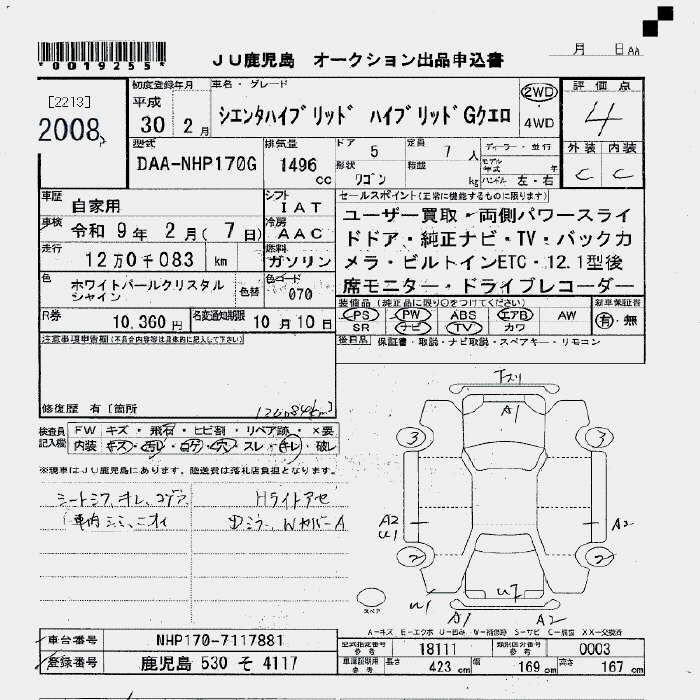 *0019255*
JU鹿児島 オークション出品申込書
月 日 AA
[2213]
2008
初度登録年月
平成
30 2 月
車名・グレード
シエンタハイブリッド ハイブリッドGクエロ
2WD
4WD
評価点
4
外装 内装
C C
型式
DAA-NHP170G
排気量
1496
cc
ドア 5
形状
ワゴン
定員
7 人
積載
kg
ディーラー・並行
モデル年式 年
ハンドル 左・右
車歴
自家用
シフト
IAT
車検
令和 9 年 2 月 ( 7 日)
冷房
AAC
走行
12万0千083 km
燃料
ガソリン
色
ホワイトパールクリスタル
シャイン
色替
色コード
070
R券
10,360円
名変通知期限
10月10日
セールスポイント(正常に機能するものに限ります)
ユーザー買取・両側パワースライ
ドドア・純正ナビ・TV・バックカ
メラ・ビルトインETC・12.1型後
席モニター・ドライブレコーダー
装備品 (純正品に限り○をつけてください)
PS PW ABS エアB AW
SR ナビ TV カワ
新車保証書
有・無
後日品 保証書・取説・ナビ取説・スペアキー・リモコン
注意事項申告欄(不具合内容等は具体的に記入して下さい)
修復歴 有 [箇所
120084km)
検査員
記入欄
FW キズ・飛石・ヒビ割・リペア跡・×要
内装 キズ・汚レ・コゲ・穴・スレ・キレ・破レ
※現車はJU鹿児島にあります。陸送費は落札店負担となります。
シートシワ、キレ、コゲ、ア
車内シミ、ニオイ
Hライトアセ
Dミラー、WカバーA
下スリ
A1
3 3
A2
U1
A2
2 2
U1
U7
A1
A2
スペア
A-キズ E-エクボ U-凹み W-補修跡 S-サビ C-腐蝕 XX-交換済
車台番号
NHP170-7117881
登録番号
鹿児島 530 そ 4117
型式指定番号
参考
18111
類別区分番号
参考
0003
車庫証明用
参考
長さ 423 cm 幅 169 cm 高さ 167 cm